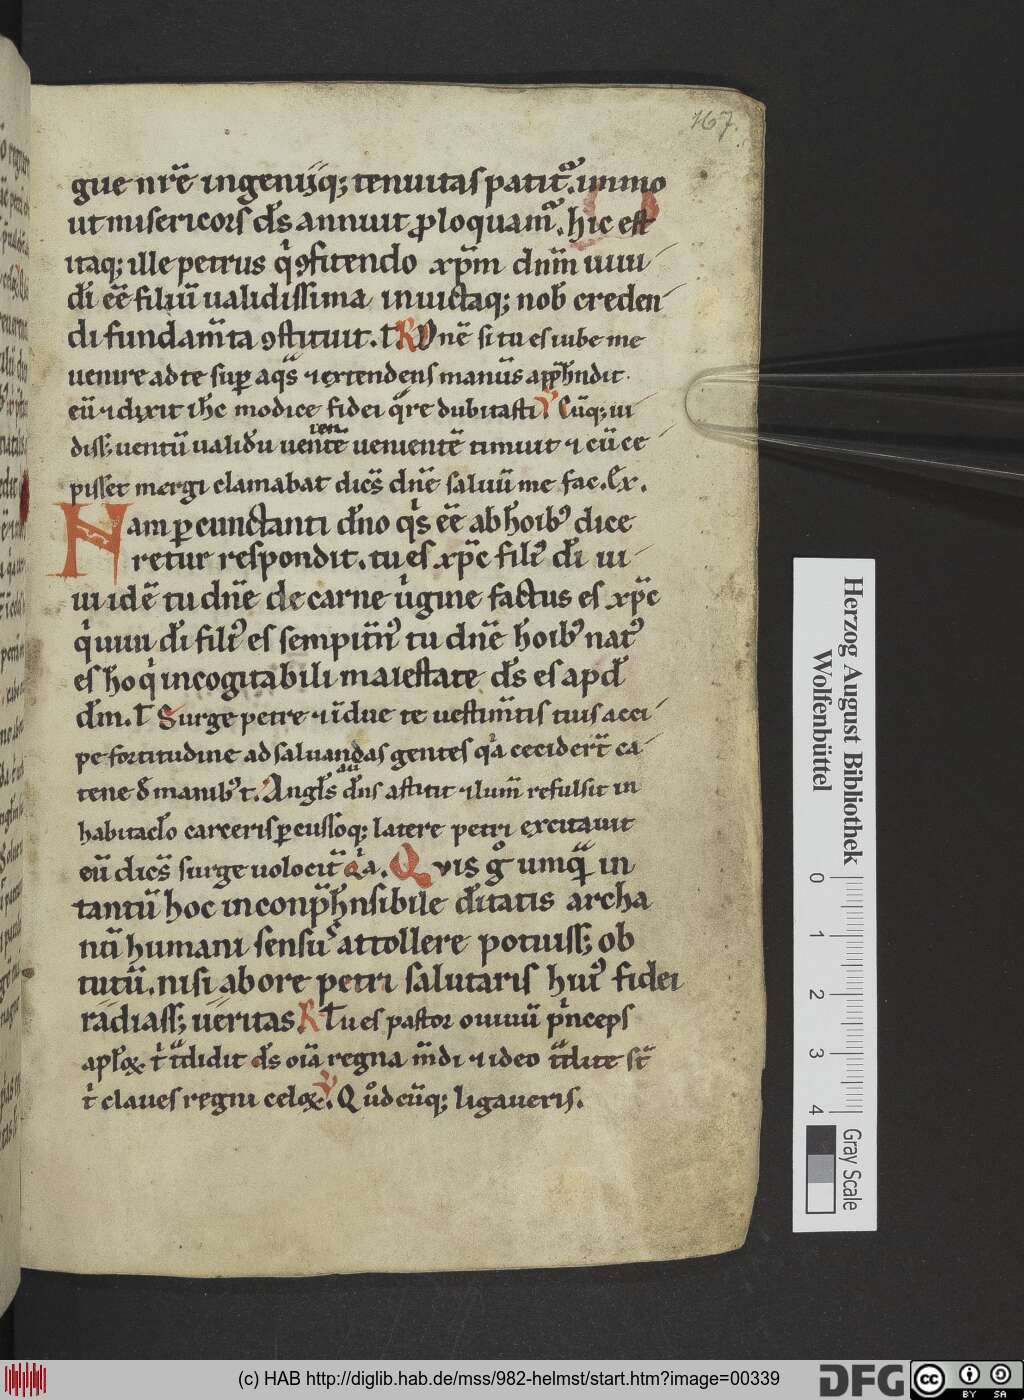 167.
gue nr̄e ingenijq; tenuitas patit᷑. immo
ut misericors d̄s annuit ꝓloquam᷑. hic est
itaq; ille petrus q̇ ꝯfitendo xp̄m dn̄m uiui
d̄i eē filiū ualidissima inuictaq; nob̄ creden
di fundam̄ta ꝯstituit. T R Dn̄e si tu es iube me
uenire ad te suꝑ aq̄s ⁊ extendens manū apꝑhndit.
eū ⁊ dixit ih̄c modice fidei q̄re dubitasti V Cūq; ui
diss; uentū ualidū uentē uenientē timuit ⁊ cū ce
pisset mergi clamabat dicēs dn̄e saluū me fac. Ex.
Nam ꝑcunctanti dn̄o q̇s eē ab hoib᷒ dice
retur respondit. tu es xp̄c fili᷒ d̄i ui
ui idē tu dn̄e de carne u̇gine factus es xp̄c
q̇ uiui d̄i fili᷒ es sempit̄n᷒ tu dn̄e hoib᷒ nat᷒
es ho q̇ incogitabili maiestate d̄s es apd̄
d̄m. T Surge petre ⁊ īdue te uestim̄tis tuis acci
pe fortitudine ad saluandas gentes q̇a cecidert̄ ca
tene d̄ manib᷒ t. Angl̄s aū dn̄s astitit ⁊ lum̄ refulsit in
habitacl̄o carceris ꝑcussoq; latere petri excitauit
eū dicēs surge uelocit̄ Q̇a. Quis g̊ umqᷓ in
tantū hoc inconp̄hnsibile d̄itatis archa
nū humani sensu᷒ attollere potuiss; ob
tutū. nisi ab ore petri salutaris hui᷒ fidei
radiass; ueritas R Tu es pastor ouiuū ṗnceps
apl̄oꝝ t̄ t̄didit d̄s oīa regna m̄di ⁊ ideo t̄dite st̄
t̄ claues regni celoꝝ. V Qůdcūq; ligaueris.
Herzog August Bibliothek
Wolfenbüttel
0 1 2 3 4
Gray Scale
(c) HAB http://diglib.hab.de/mss/982-helmst/start.htm?image=00339
DFG cc BY SA